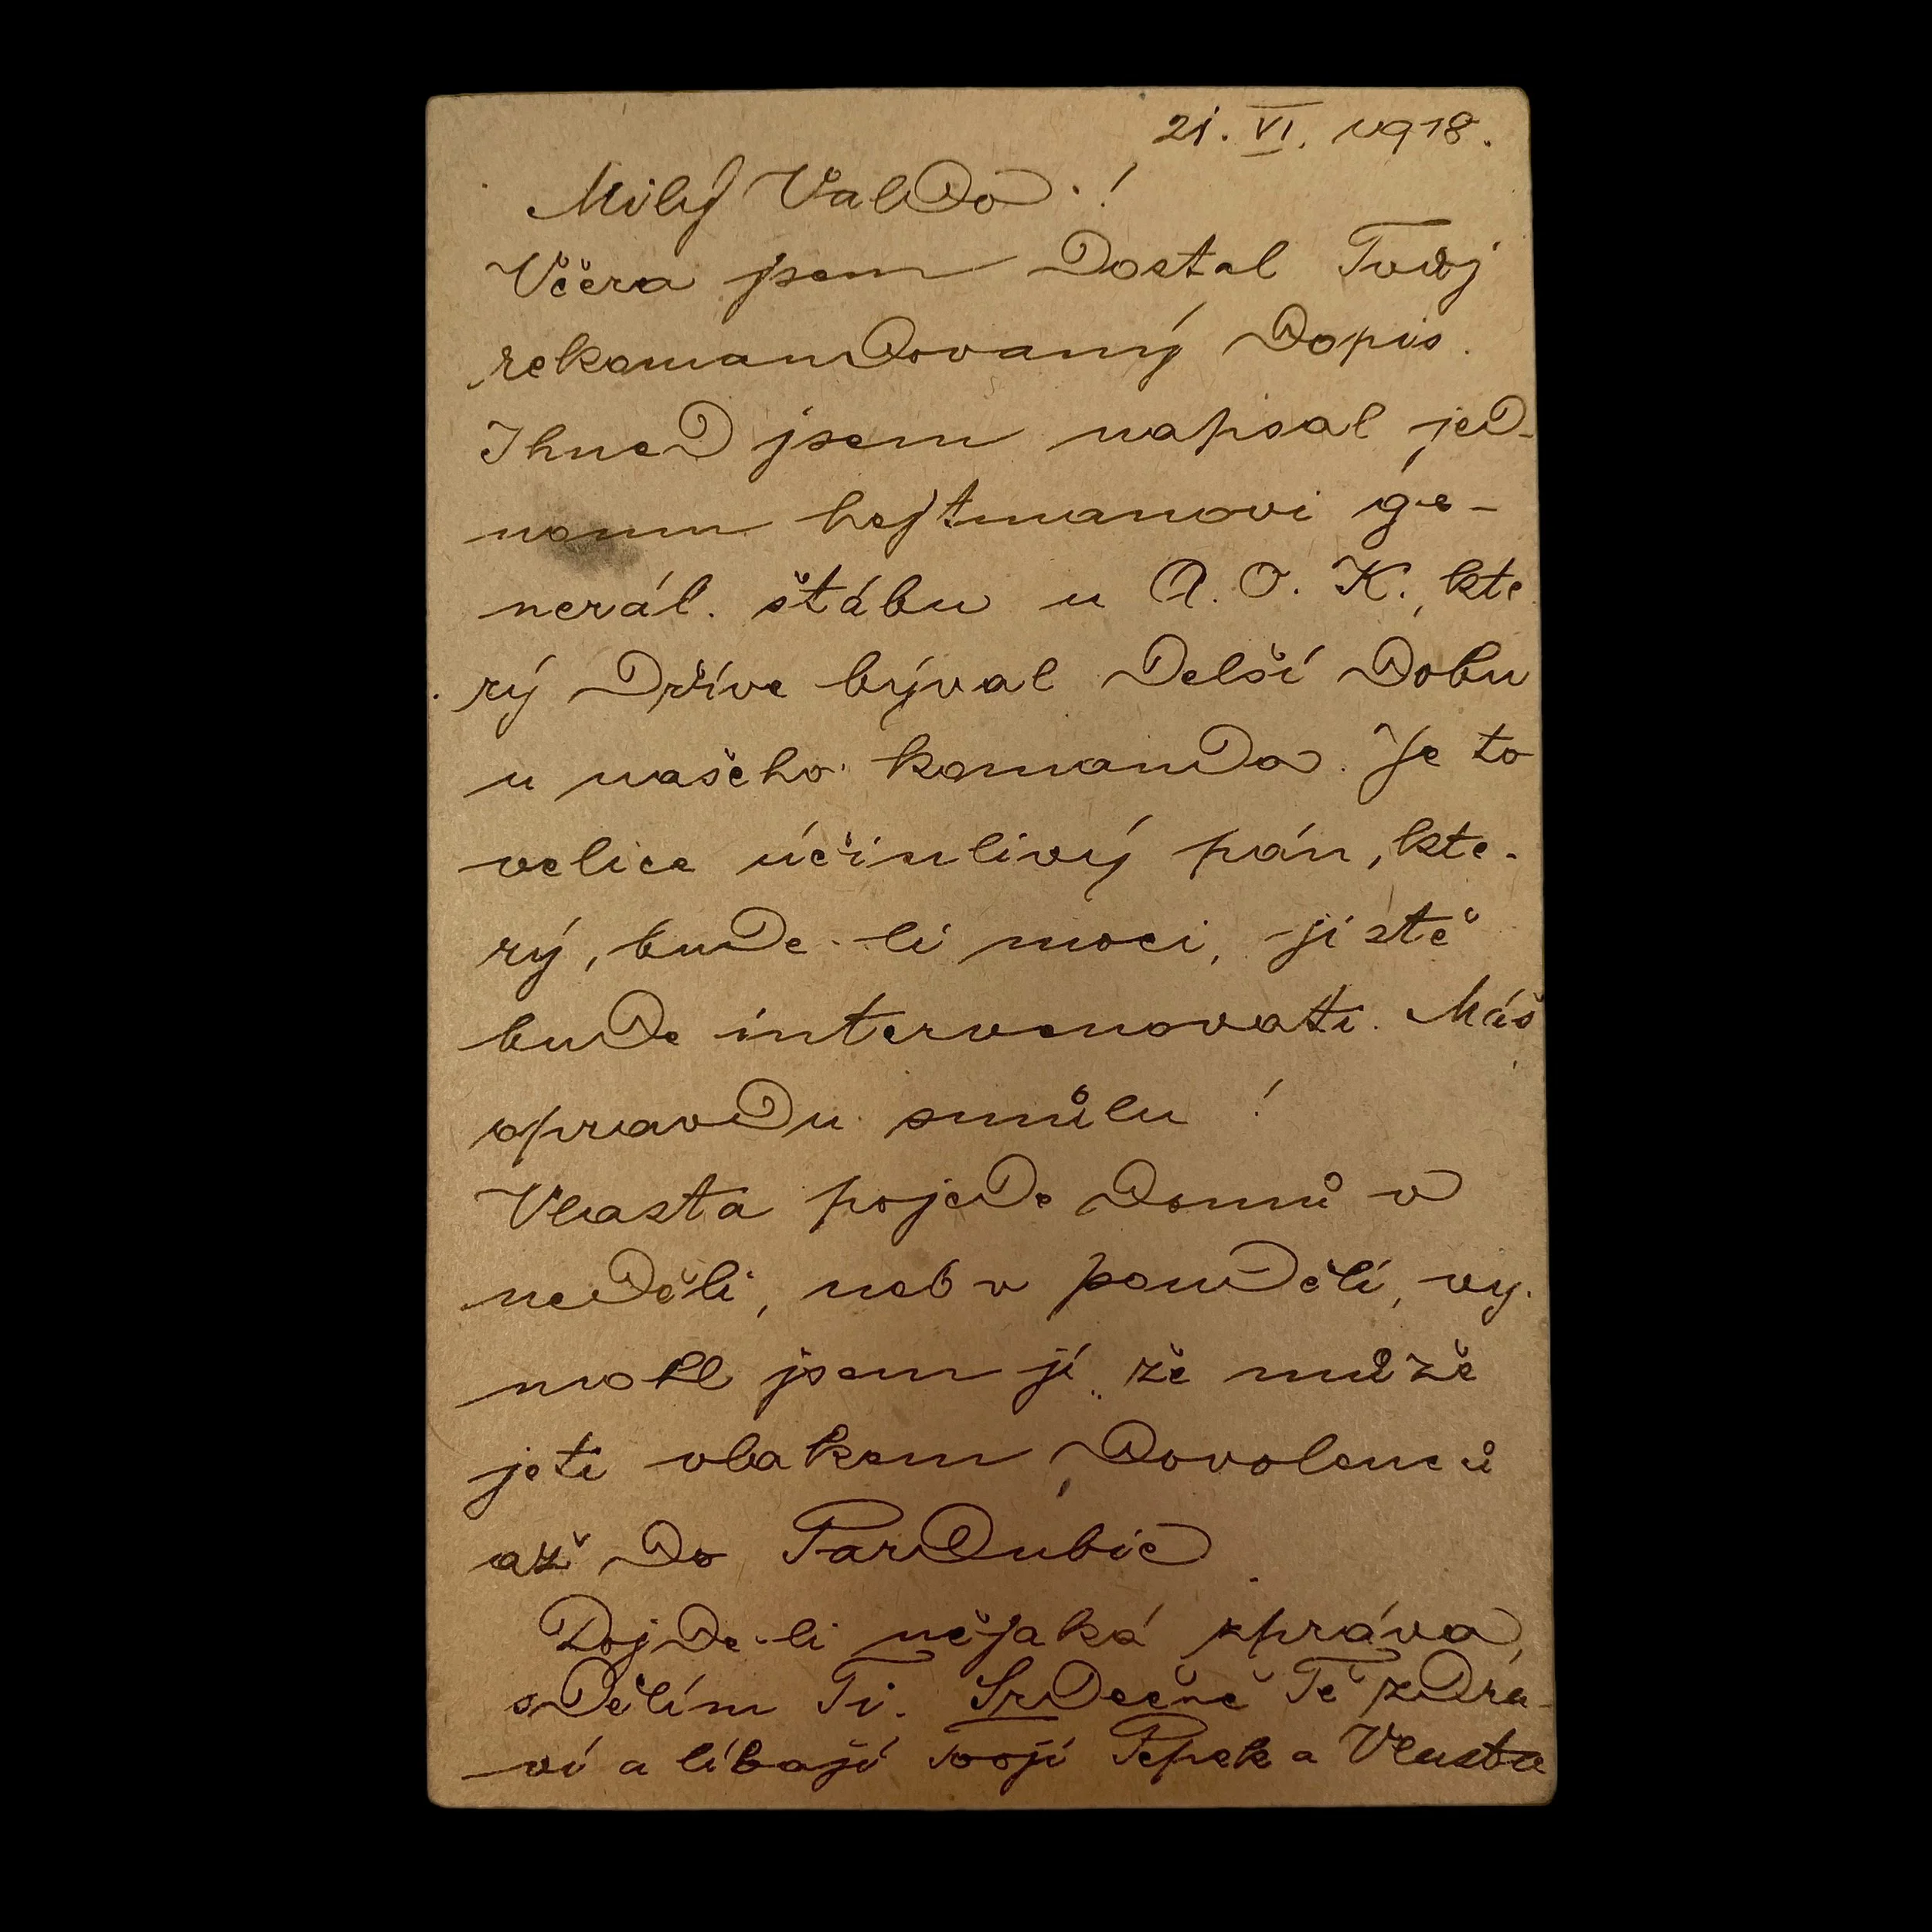 21. VI. 1918.
Milý Valdo!
Včera jsem dostal Tvůj
rekomandovaný dopis.
Ihned jsem napsal jed-
nomu hejtmanovi ge-
nerál. štábu u A. O. K., kte
rý dříve býval delší dobu
u našeho komanda. Je to
velice účinlivý pán, kte-
rý, bude-li moci, jistě
bude intervenovati. Máš
opravdu smůlu!
Vlasta pojede domů v
neděli, neb v pondělí, vy-
mohl jsem jí, že může
jeti vlakem dovolenců
až do Pardubic.
Dojde-li nějaká zpráva,
sdělím Ti. Srdečně Tě zdra-
ví a líbají Tvoji Pepek a Vlasta